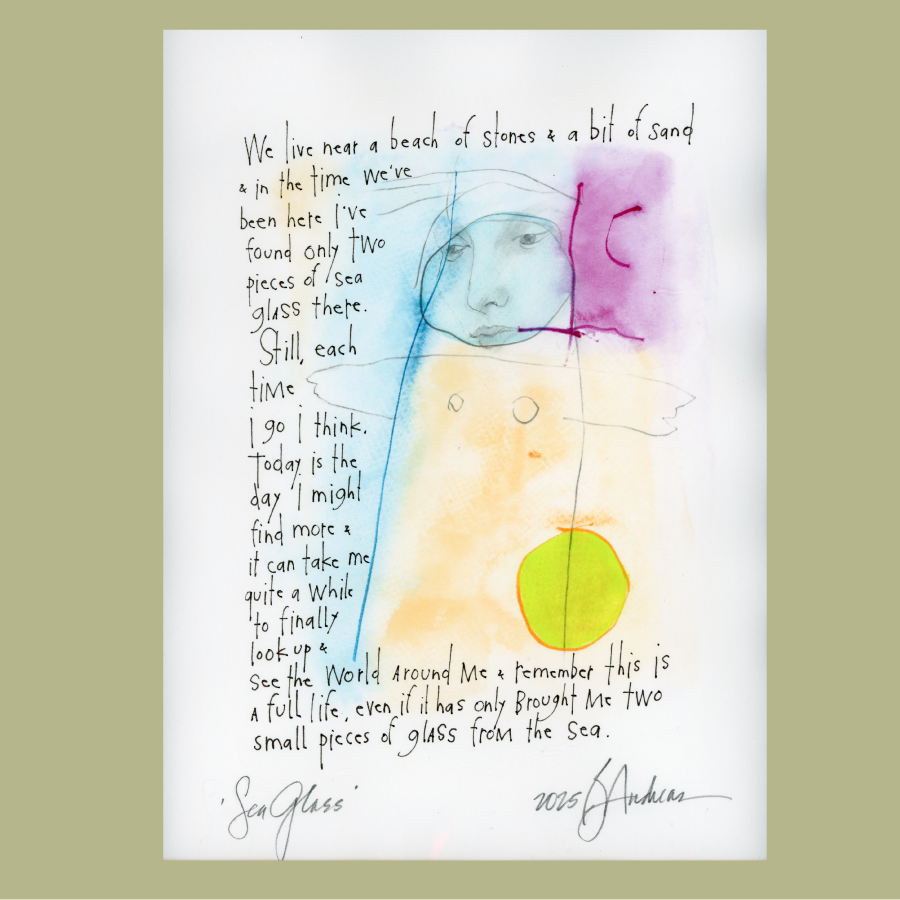 We live near a beach of stones & a bit of sand
& in the time we've
been here I've
found only two
pieces of sea
glass there.
Still, each
time
i go I think.
Today is the
day I might
find more &
it can take me
quite a while
to finally
look up &
see the World Around Me & remember this is
a full life, even if it has only Brought Me two
small pieces of glass from the sea.
'Sea Glass'
2025 B Andreas